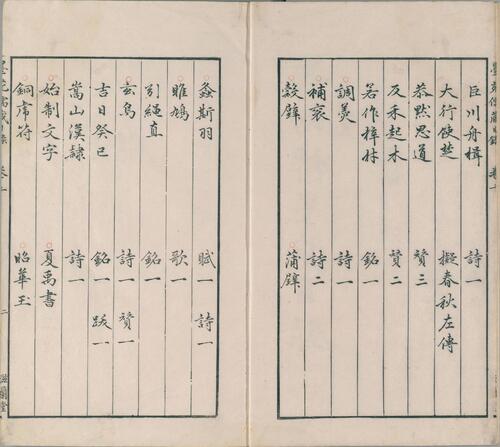 巨川舟楫 詩一
大行使楚 擬春秋左傳
恭默思道 贊三
反禾起木 贊二
若作梓材 銘一
調羹 詩一
補袞 詩二
穀璧 蒲璧
螽斯羽 賦一 詩一
雎鳩 歌一
引繩直 銘一
玄鳥 詩一 贊一
吉日癸巳 銘一 跋一
嵩山漢隸 詩一
始制文字 夏禹書
銅虎符 昭華玉
二 滋蘭堂